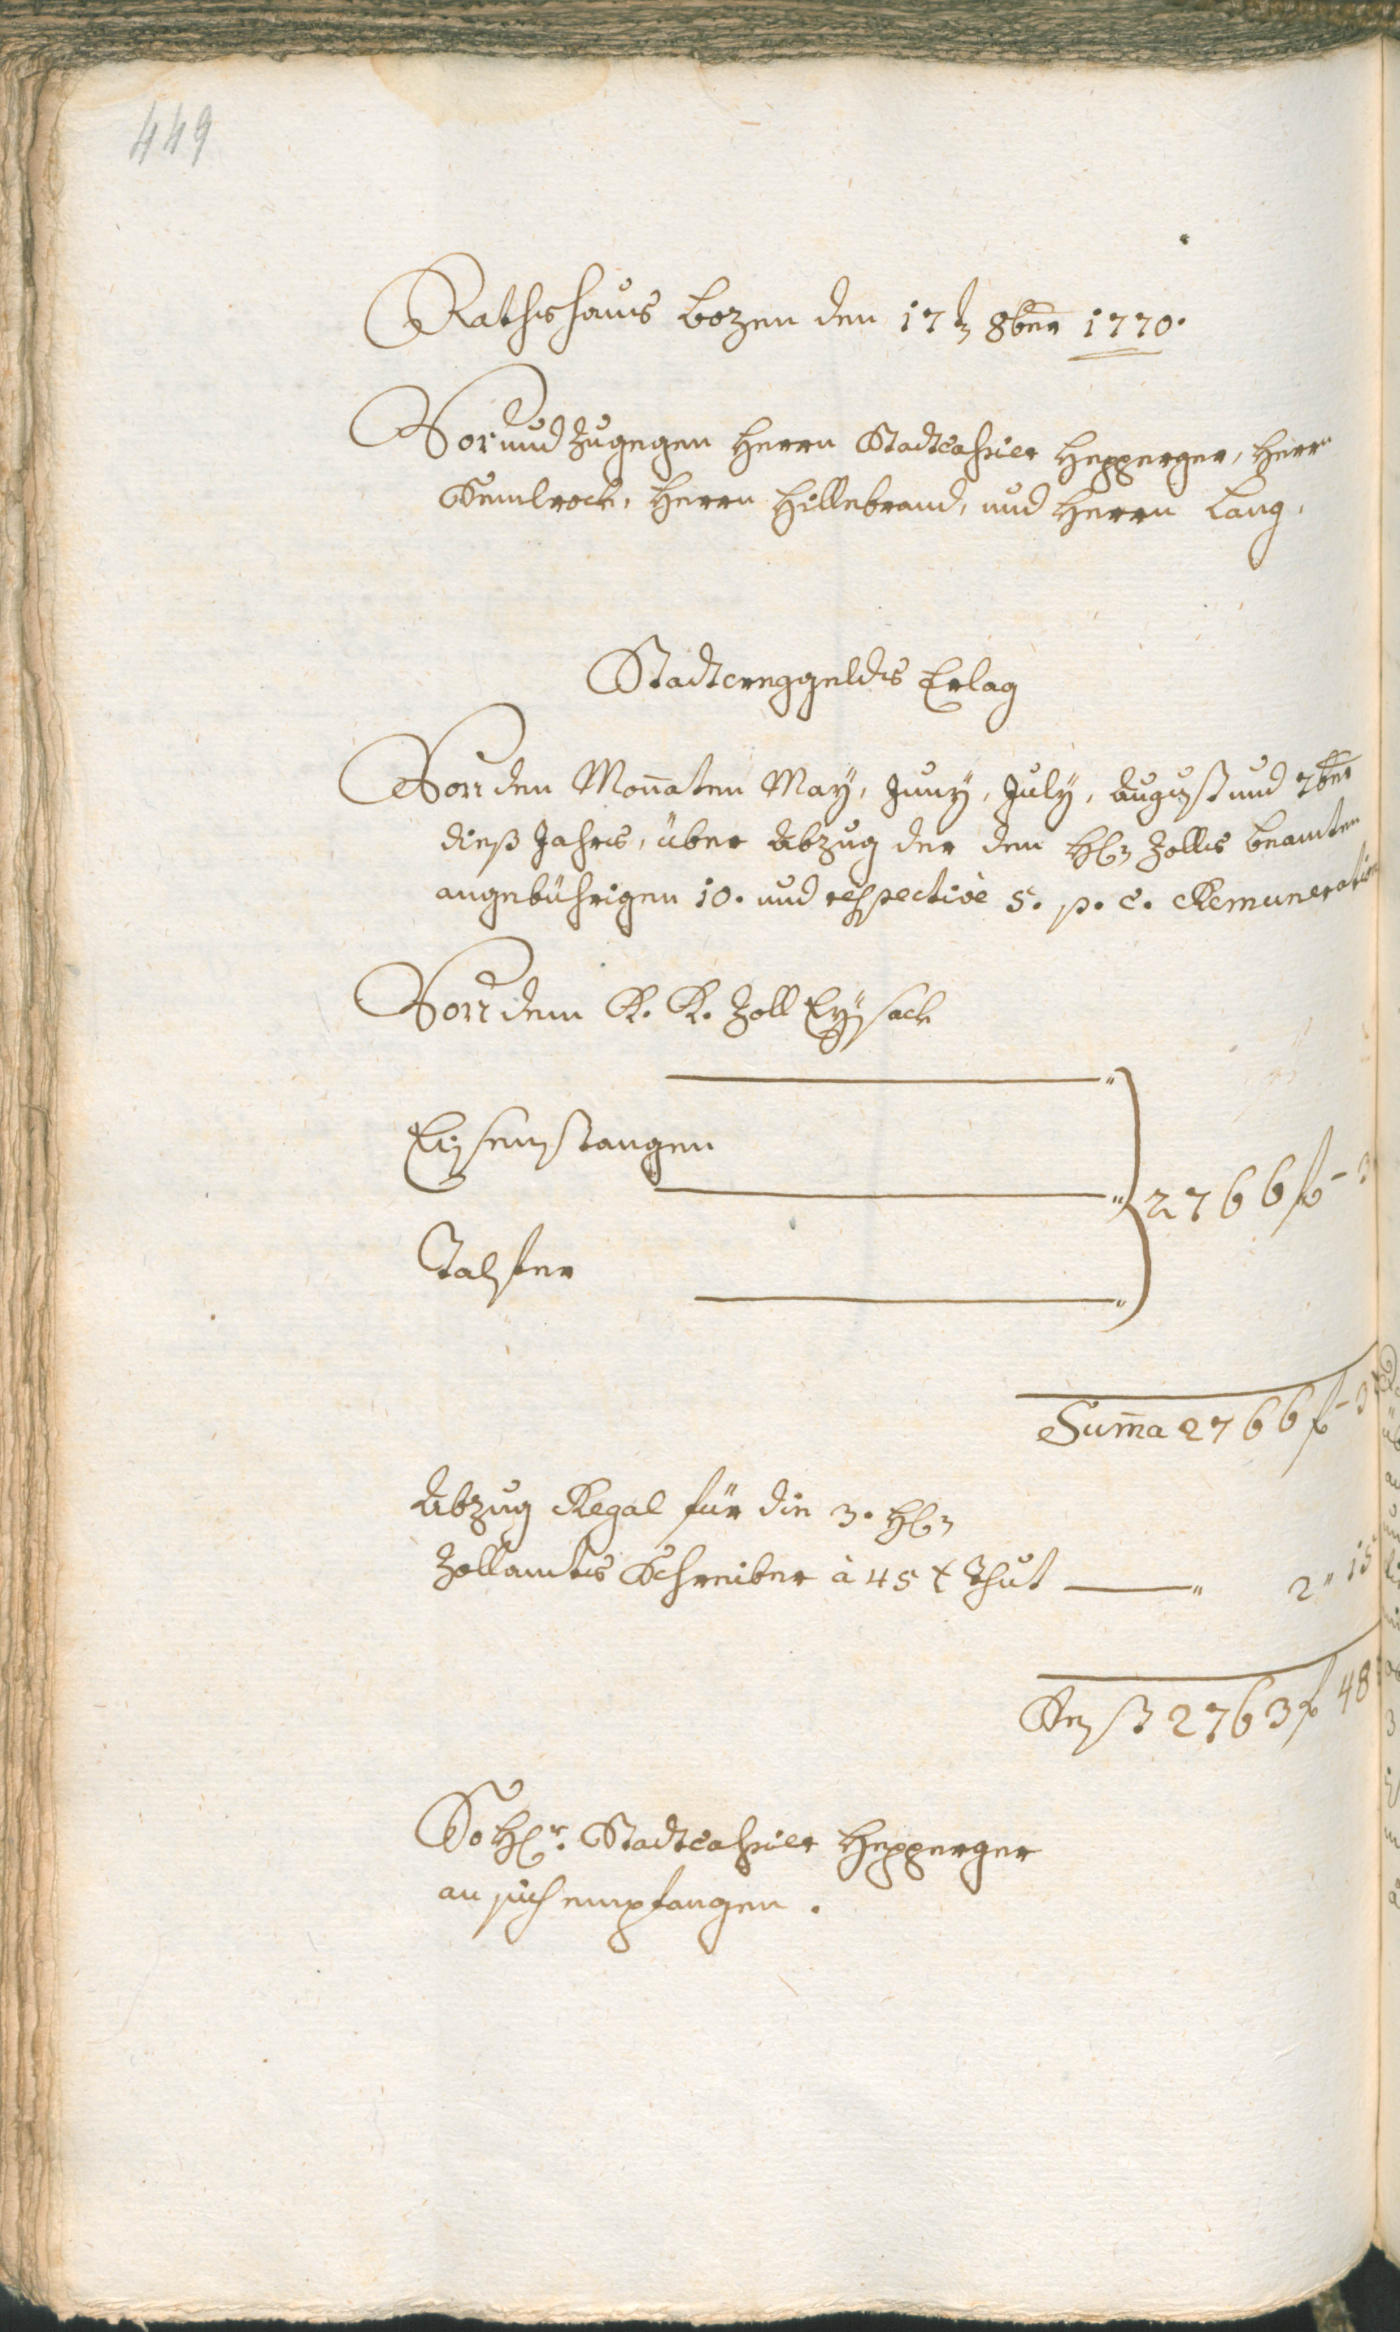 449
Rathshaus Bozen den 17t 8ber 1770.
Vor und zugegen Herrn Stadtcassier Hepperger, Herrn
Kemlrock, Herrn Hillebrand, und Herrn Lang,
Stadtweggelds Erlag
Von den Monnaten May, Juny, July, August und 7ber
dieß Jahrs, über Abzug der den Hl Zolls beamten
angebührigen 10. und respective 5. p. C. Remuneration
Von dem K. K. Zoll Eysack
Eysenstangen
2766 f - 3
Talfer
Summa 2766 f - 3
Abzug Regal für die 3. Hl
Zollamts Schreiber à 45 x Thut 2 " 15
Rest 2763 f 48
So Hr. Stadtcassier Hepperger
an sich empfangen.